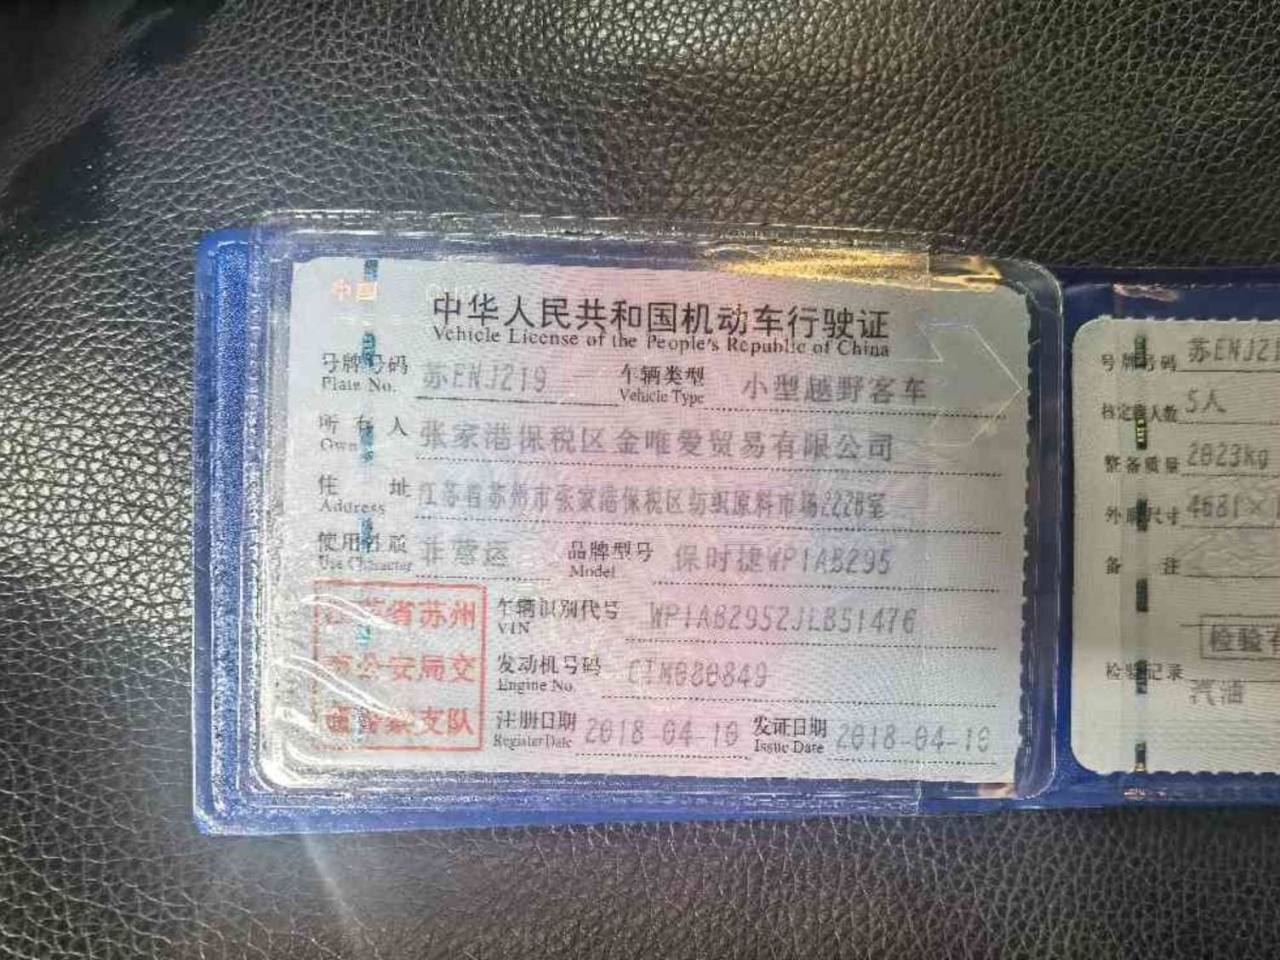 中国
中华人民共和国机动车行驶证
Vehicle License of the People's Republic of China
号牌号码 苏ENJ219 车辆类型 小型越野客车
Plate No. Vehicle Type
所有人 张家港保税区金唯爱贸易有限公司
Owner
住址 江苏省苏州市张家港保税区纺织原料市场222B室
Address
使用性质 非营运 品牌型号 保时捷WP1AB295
Use Character Model
江苏省苏州
市公安局交
通警察支队
车辆识别代号 WP1AB2952JLB51476
VIN
发动机号码 CIM080849
Engine No.
注册日期 2018-04-10 发证日期 2018-04-10
Register Date Issue Date
号牌号码 苏ENJ21
核定载人数 5人
整备质量 2023kg
外廓尺寸 4681×
备注
检验
检验记录
汽油